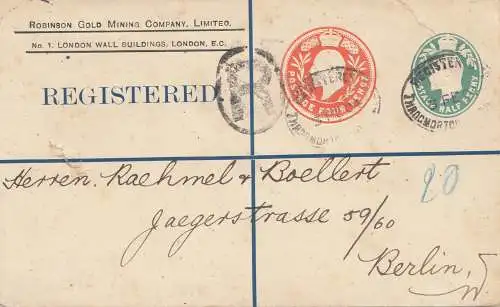 Robinson Gold Mining Company, Limited.
No. 1, LONDON WALL BUILDINGS, LONDON, E.C.
REGISTERED
R
POSTAGE FOUR PENCE
HALF PENNY
REGISTERED
THROGMORTON
REGISTERED
THROGMORTON
Herren. Raehmel & Boellert
20
Jaegerstrasse 59/60
Berlin,
W.